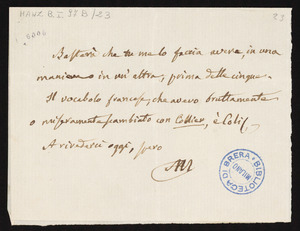 MANZ. B. I. 97 B/23
23
Basterà che tu me lo faccia avere, in una
maniera o in un'altra, prima delle cinque.
Il vocabolo francese, che avevo bruttamente
o scambiato con Collier, è Colis.
A rivederci oggi, spero
BIBLIOTECA DI BRERA
MILANO